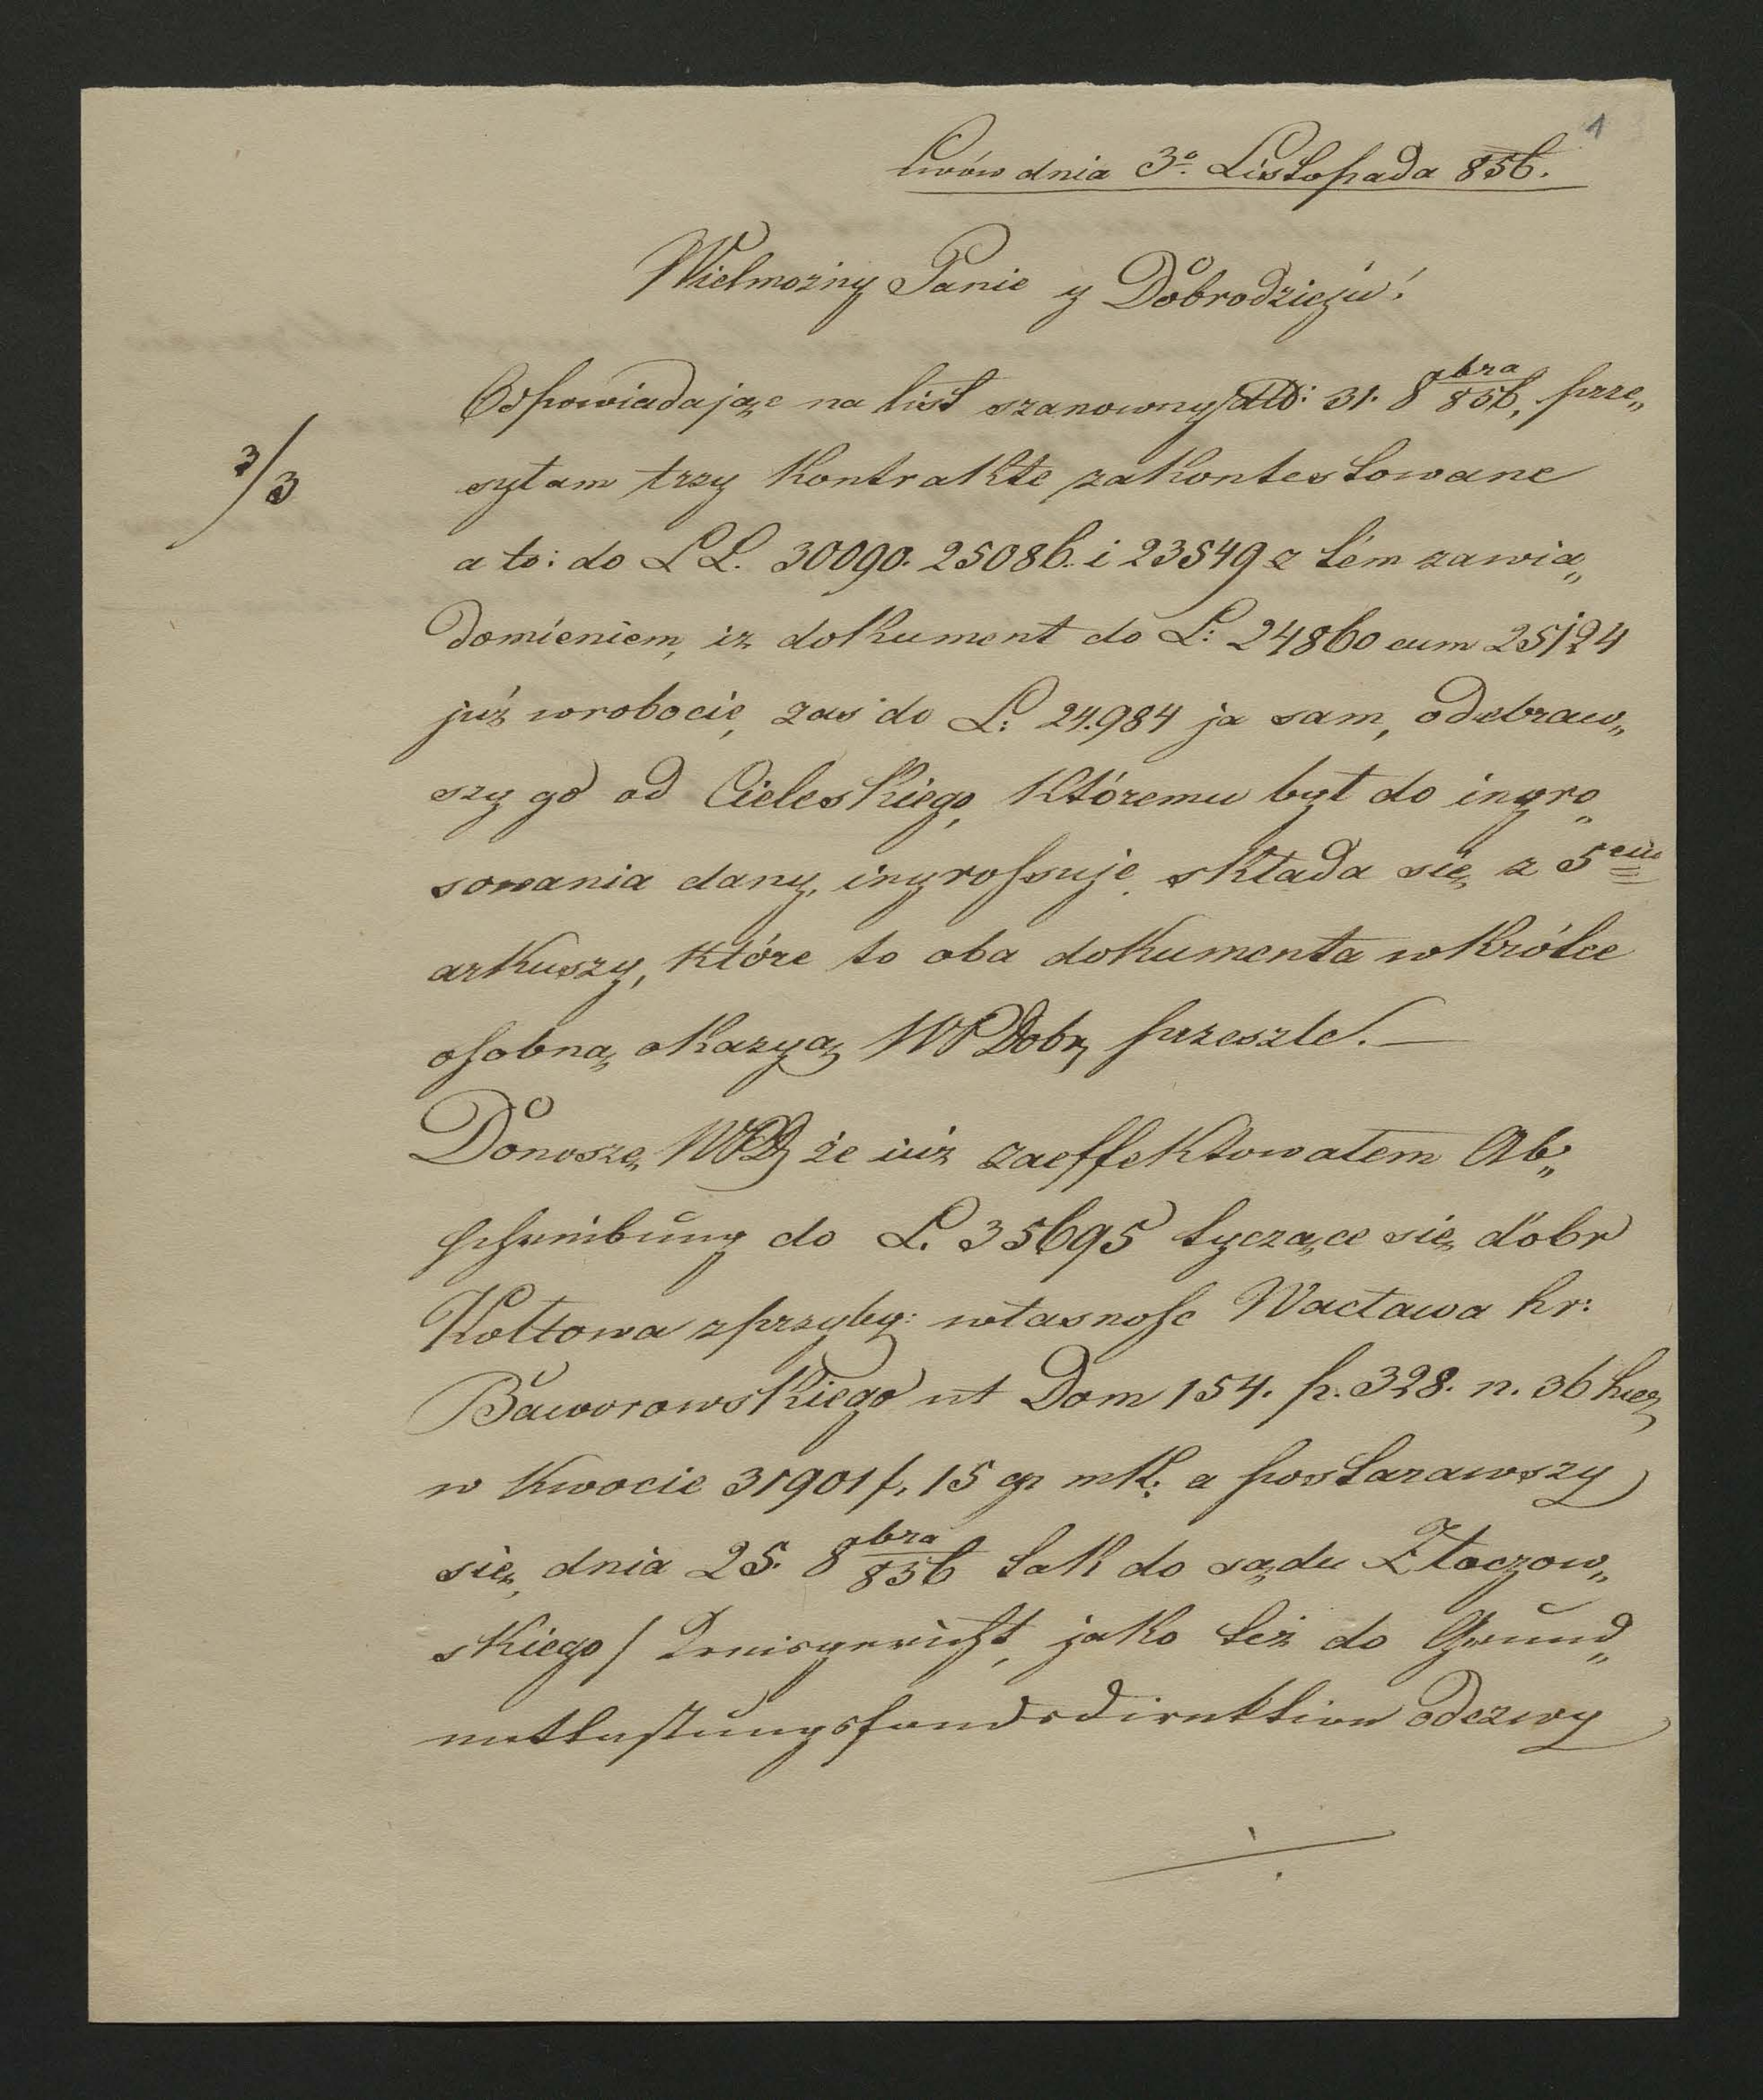 1
Lwów dnia 3º Listopada 856.
Wielmożny Panie y Dobrodzieju!
Odpowiadając na list szanowny dtto: 31. 8obra 856, prze„
3/3
syłam trzy kontrakte zakontestowane
a to: do LL. 30090. 25086. i 23549 z tém zawia„
domieniem, iż dokument do L: 24860 cum 25124
już wrobocie, zaś do L: 24984 ja sam, odebraw„
szy go od Cieleskiego, któremu był do ingro„
sowania dany, ingrossuje, składa się z 5ciu
arkuszy, które to oba dokumenta wkrótce
osobną okazyą WPDobr przeszlę. —
Donoszę WPD że iuż zaeffektowałem Ab„
schreibung do L. 35695 tyczące się dóbr
Kołtowa z przyby: własność Wacława hr:
Baworowskiego ut Dom 154. p. 328. n. 36 haer
w kwocie 31901 f. 15 gr mk: a postarawszy
się, dnia 25. 8obra 856 tak do sądu Złoczow„
skiego / Kreisgericht, jako też do Grund„
entlastungsfondsdirektion odezwy